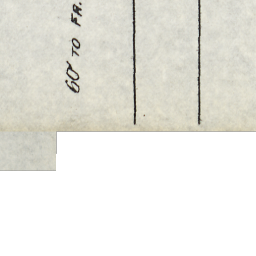 60' TO FR.